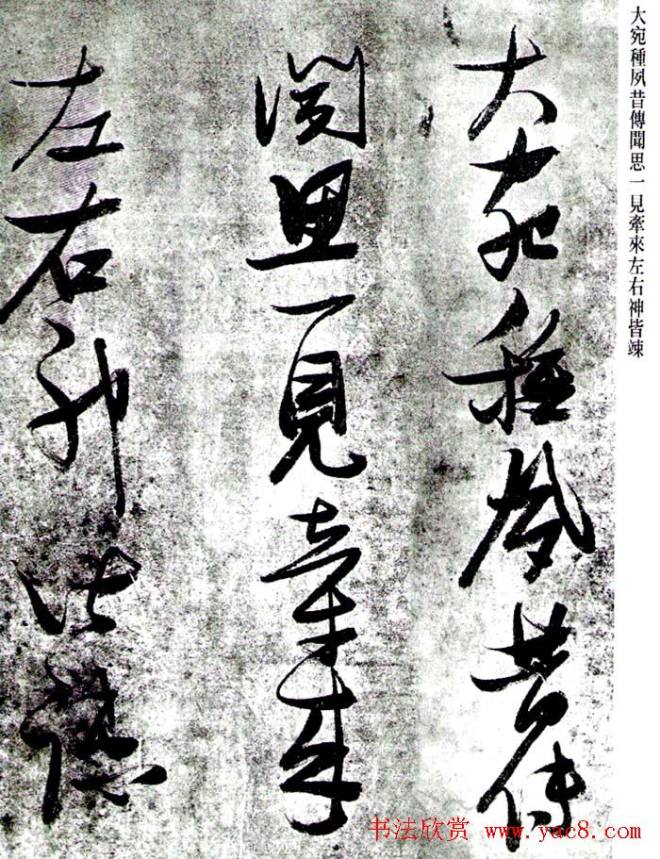 大宛種夙昔傳聞思一見牽來左右神皆竦
大宛種夙昔傳
聞思一見牽來
左右神皆竦
书法欣赏 www.yac8.com